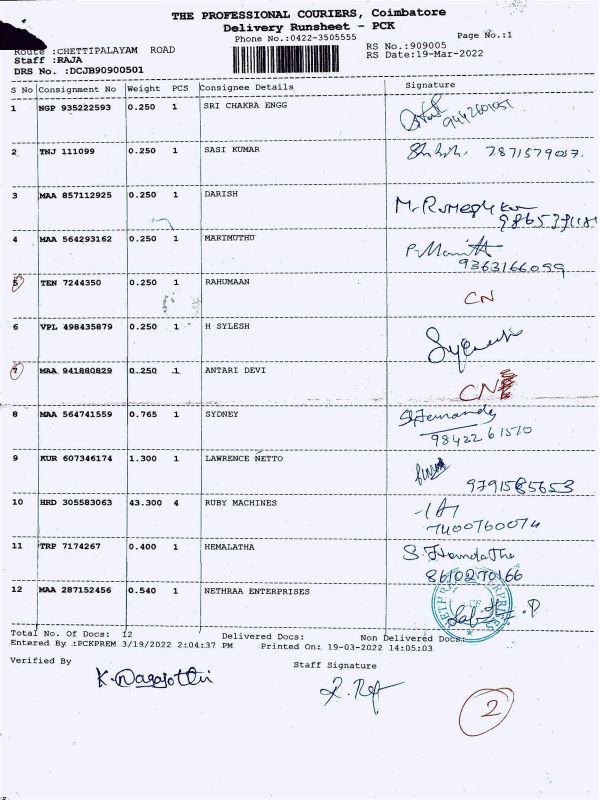 THE PROFESSIONAL COURIERS, Coimbatore
Delivery Runsheet - PCK
Phone No.:0422-3505555
Page No.:1
RS No.:909005
RS Date:19-Mar-2022
Route :CHETTIPALAYAM ROAD
Staff :RAJA
DRS No. :DCJB90900501
S No Consignment No Weight PCS Consignee Details Signature
1 NGP 935222593 0.250 1 SRI CHAKRA ENGG
2 TNJ 111099 0.250 1 SASI KUMAR 7871579037.
3 MAA 857112925 0.250 1 DARISH
4 MAA 564293162 0.250 1 MARIMUTHU
9363166099
5 TEN 7244350 0.250 1 RAHUMAAN CN
6 VPL 498435879 0.250 1 H SYLESH
7 MAA 941880829 0.250 1 ANTARI DEVI CN
8 MAA 564741559 0.765 1 SYDNEY S.Fernandez
9842261510
9 KUR 607346174 1.300 1 LAWRENCE NETTO
9791585653
10 HRD 305583063 43.300 4 RUBY MACHINES
7400760074
11 TRP 7174267 0.400 1 HEMALATHA
8610270166
12 MAA 287152456 0.540 1 NETHRAA ENTERPRISES
Total No. Of Docs: 12 Delivered Docs: Non Delivered Docs:
Entered By :PCKPREM 3/19/2022 2:04:37 PM Printed On: 19-03-2022 14:05:03
Verified By Staff Signature
2